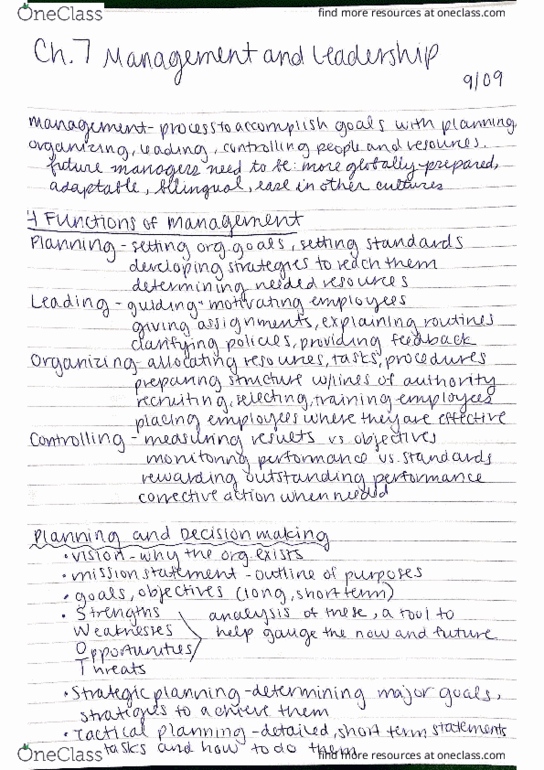 OneClass
find more resources at oneclass.com
Ch. 7 Management and Leadership
9/09
management - process to accomplish goals with planning,
organizing, leading, controlling people and resources.
future managers need to be: more globally-prepared,
adaptable, bilingual, ease in other cultures
4 Functions of management
Planning - setting org. goals, setting standards
developing strategies to reach them
determining needed resources
Leading - guiding + motivating employees
giving assignments, explaining routines
clarifying policies, providing feedback
Organizing - allocating resources, tasks, procedures
preparing structure w/lines of authority
recruiting, selecting, training employees
placing employees where they are effective
Controlling - measuring results vs objectives
monitoring performance vs. standards
rewarding outstanding performance
corrective action when needed
Planning and Decision making
• vision - why the org exists
• mission statement - outline of purposes
• goals, objectives (long, short term)
• Strengths
Weaknesses
Opportunities
Threats
analysis of these, a tool to
help gauge the now and future
• Strategic planning - determining major goals,
strategies to achieve them
• Tactical planning - detailed, short term statements
tasks and how to do them
OneClass
find more resources at oneclass.com